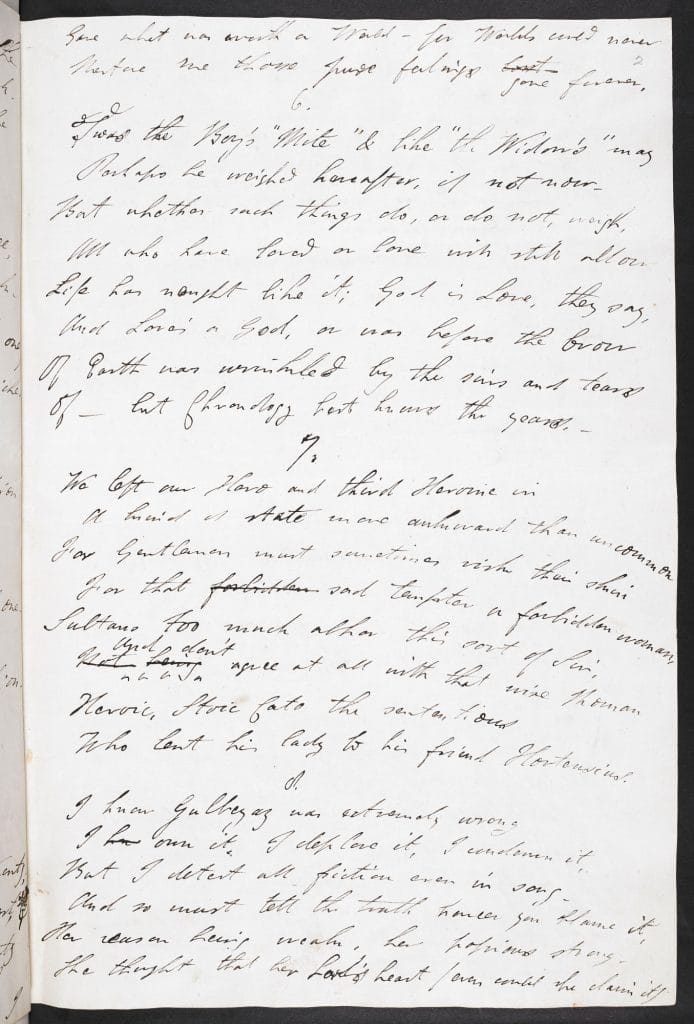 Gave what was worth a World – for Worlds could never
Restore me those pure feelings lost gone forever.
2
6.
'Twas the Boy's "Mite" & like "the Widow's" may
Perhaps be weighed hereafter, if not now –
But whether such things do, or do not, weigh,
All who have loved or love will still allow
Life has nought like it; God is Love, they say,
And Love's a God, or was before the brow
Of Earth was wrinkled by the sins and tears
Of – but Chronology best knows the years. –
7.
We left our Hero and third Heroine in
A kind of state more awkward than uncommon
For Gentlemen must sometimes risk their skin
For that forbidden sad tempter a forbidden woman,
Sultans too much abhor this sort of Sin,
And don't
Not being agree at all with that wise Roman
Heroic, Stoic Cato the sententious
Who lent his lady to his friend Hortensius.
8.
I know Gulbeyaz was extremely wrong
I own it, I deplore it, I condemn it,
But I detest all fiction even in song –
And so must tell the truth howe'er you blame it,
Her reason being weak, her passions strong –
She thought that her Lord's heart (even could she claim it)